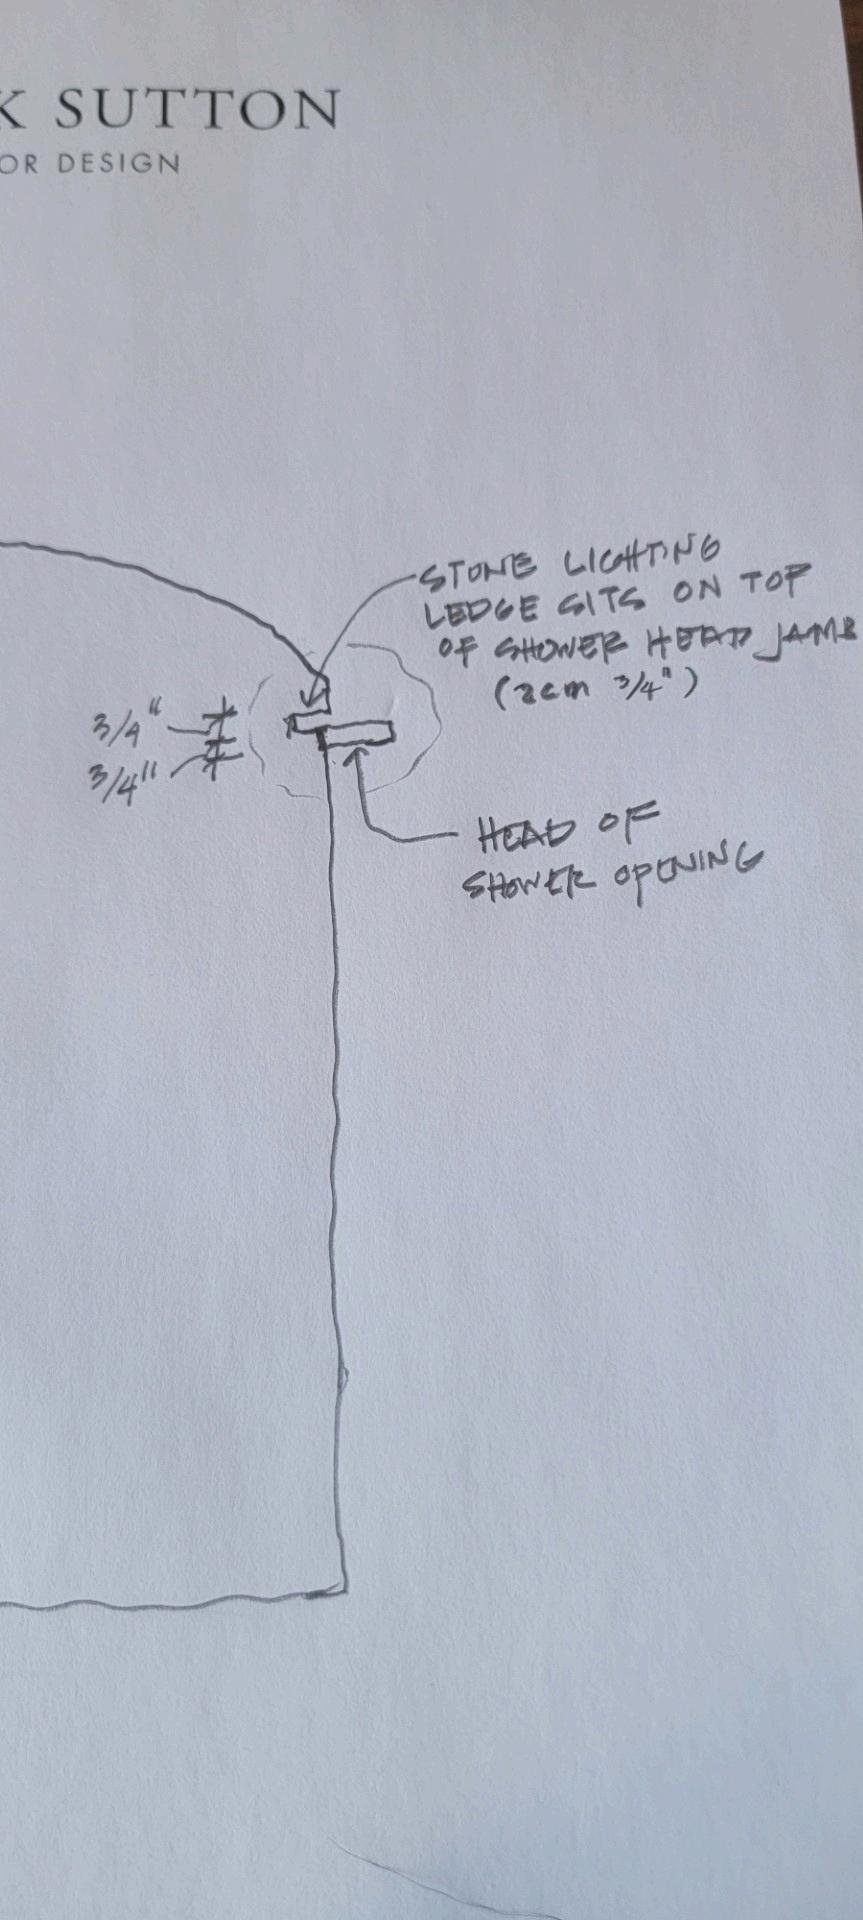 K SUTTON
OR DESIGN
STONE LIGHTING
LEDGE SITS ON TOP
OF SHOWER HEAD JAMB
(2cm 3/4")
3/4"
3/4"
HEAD OF
SHOWER OPENING